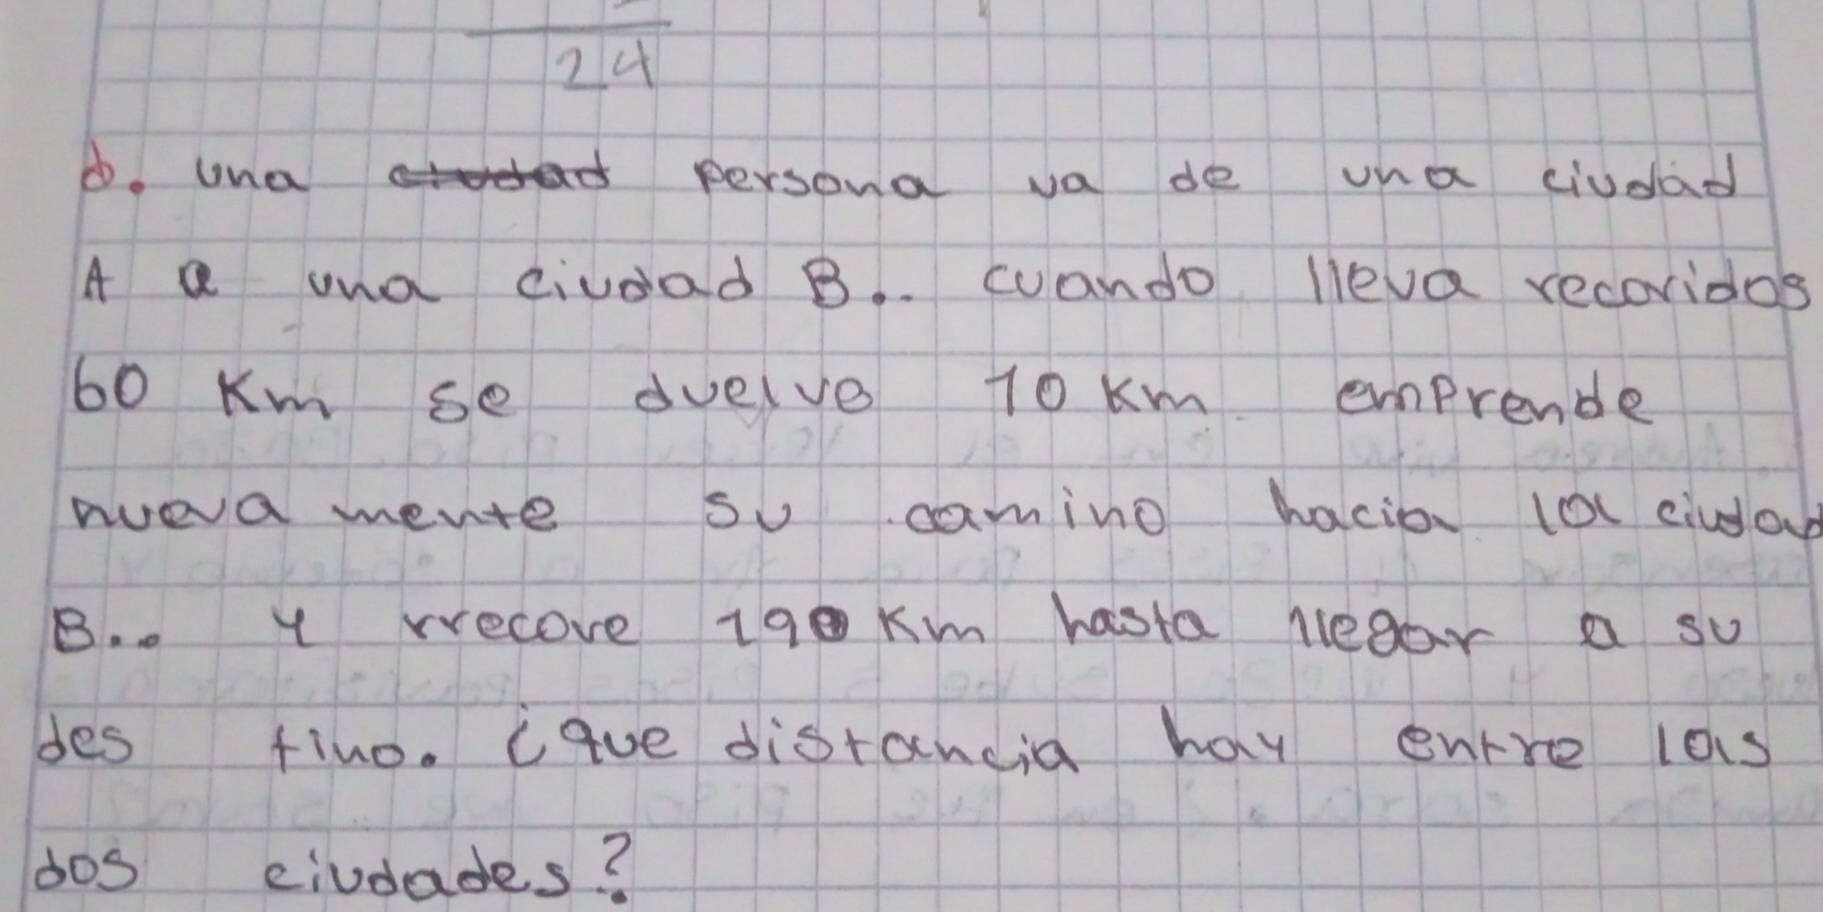 24
b. una persona va de una ciudad
A a una ciudad B.. cuando lleva recoridos
60 Km se duelve 10 Km emprende
nueva mente su camino hacia la ciudad
B.. y rrecore 190 Km hasta llegar a su
des tino. ¿que distancia hay entre las
dos ciudades?